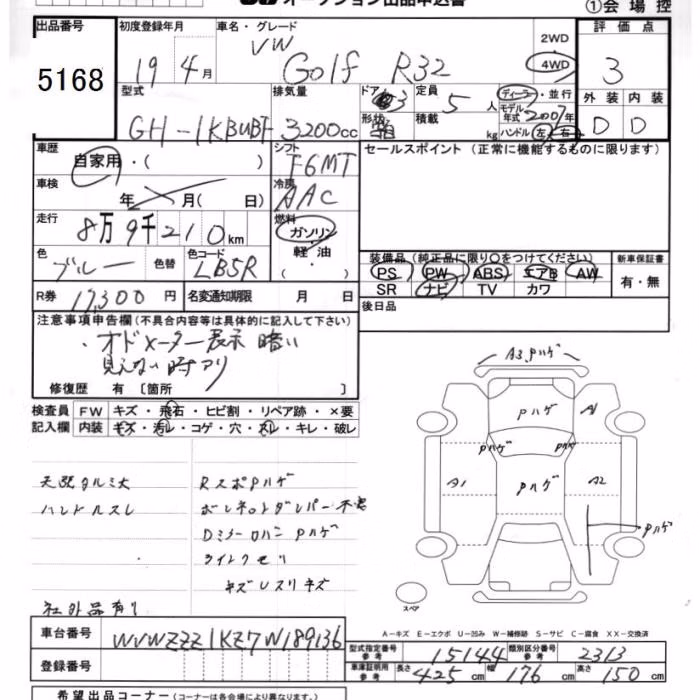 オークション出品申込書
①会場控
出品番号 初度登録年月 車名・グレード 評価点
5168 19年 4月 VW Golf R32 2WD 4WD 3
型式 排気量 ドア 3 定員 5人 ディーラー・並行 外装 内装
GH-1KBUBF 3200cc 形状 積載 kg モデル年式 2007年 D D
ハンドル 左 右
車歴 シフト セールスポイント (正常に機能するものに限ります)
自家用・( ) F6MT
車検 年 月( 日) 冷房 AAC
走行 8万9千210km 燃料 ガソリン 軽油 ・( )
色 ブルー 色替 色コード LB5R
装備品 (純正品に限り○をつけてください) 新車保証書
PS PW ABS エアB AW 有・無
SR ナビ TV カワ
R券 17,300円 名変通知期限 月 日 後日品
注意事項申告欄 (不具合内容等は具体的に記入して下さい)
・オドメーター表示 暗い
見えない時アリ
修復歴 有 [箇所 ]
検査員 FW キズ・飛石・ヒビ割・リペア跡・×要
記入欄 内装 キズ・汚レ・コゲ・穴・スレ・キレ・破レ
天張タルミ大 RスポPハゲ
ハンドルスレ ボンネットダンパー不良
DミラーロハンPハゲ
ライトクモリ
キズレスリキズ
社外品有り
A3.Pハゲ
Pハゲ A1
Pハゲ Pハゲ
A1 Pハゲ A2
Pハゲ
スペア
A-キズ E-エクボ U-凹み W-補修跡 S-サビ C-腐食 XX-交換済
車台番号 WVWZZZ1KZ7W189136
型式指定番号 参考 15144 類別区分番号 参考 2313
登録番号 車庫証明用 参考 長さ 425cm 幅 176cm 高さ 150cm
希望出品コーナー (コーナーは各会場により異なります)